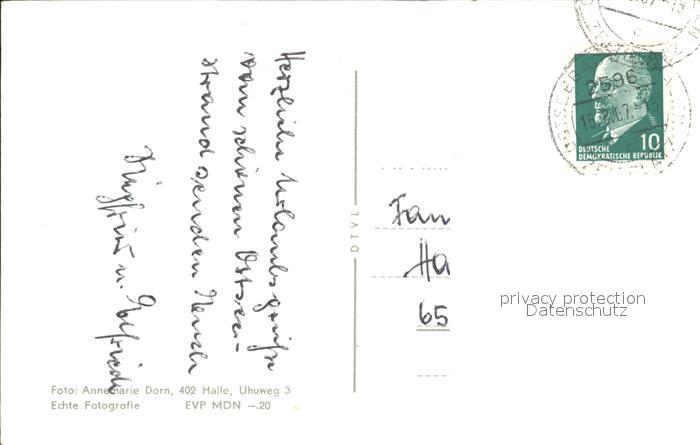 Herzliche Urlaubsgrüße
vom schönen Ostsee-
strand senden Euch
u. Elfriede
DTVL
Fam
Ha
65
privacy protection
Datenschutz
2596
10
DEUTSCHE
DEMOKRATISCHE REPUBLIK
Foto: Annemarie Dorn, 402 Halle, Uhuweg 3
Echte Fotografie EVP MDN –.20